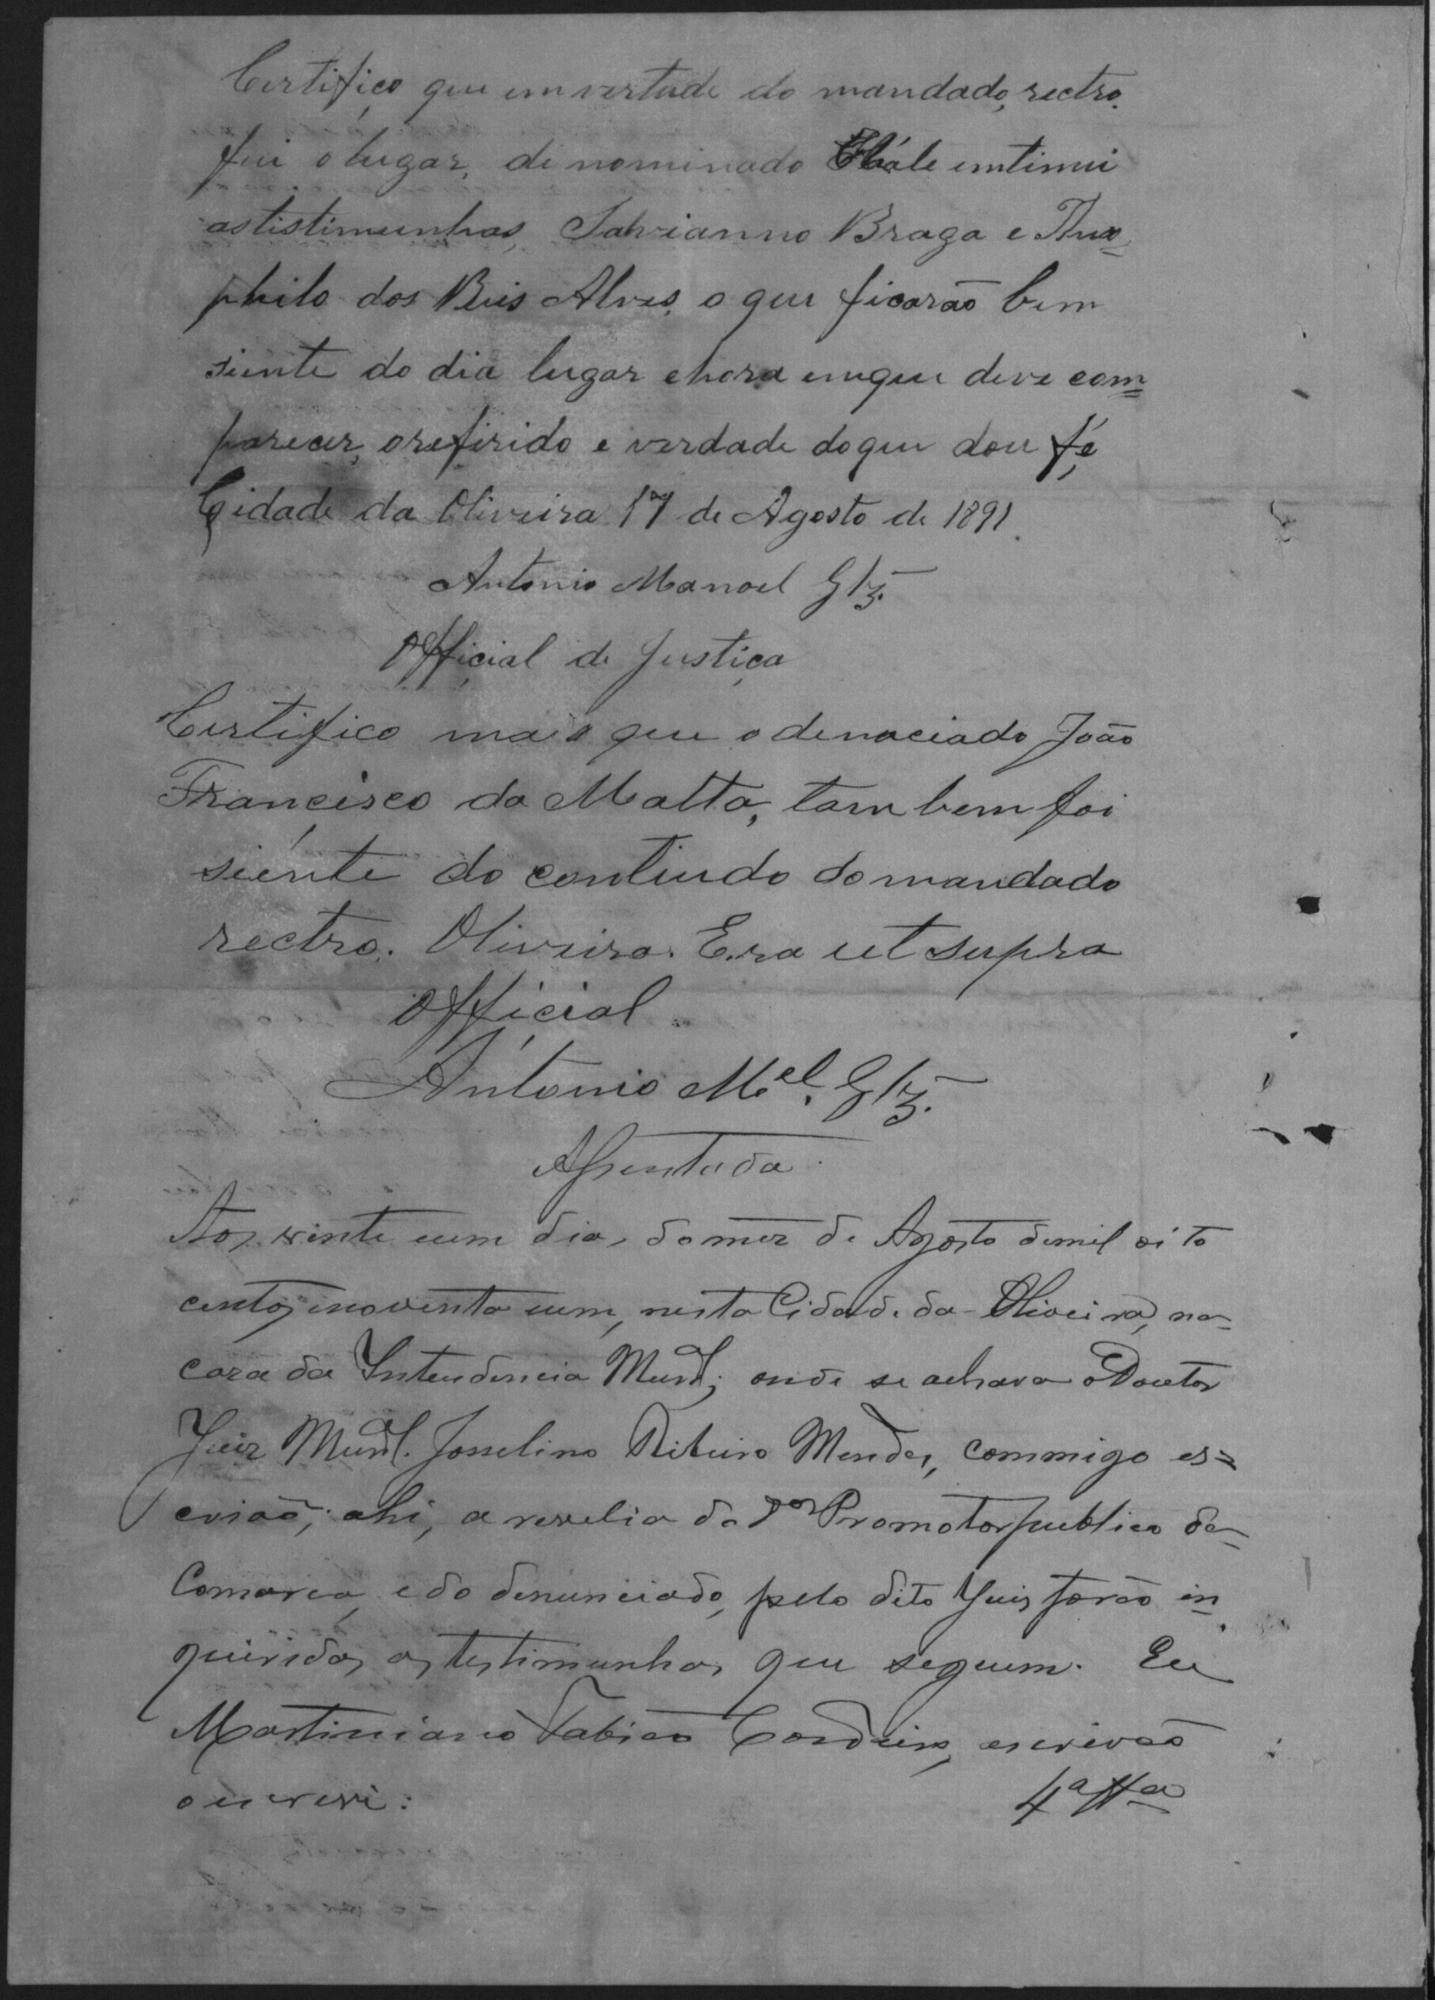 Certifico que em vertude do mandado, rectro.
fui o lugar, dinominado Chále emtimui
as tistimunhas, Salvianno Braga e Theo=
philo dos Reis Alves, o que ficarão bem
siente do dia lugar e hora em que deve com=
parecer, o refirido e verdade do que dou fé
Cidade da Oliveira 17 de Agosto de 1891.
Antonio Manoel Glz.
Official de Justiça
Certifico mais que o denaciado João
Francisco da Malta, tam bem foi
siente do contiudo do mandado
rectro. Oliveira. Era ut supra
Official
Antonio Mel. Glz.
Assentada.
Aos vinte eum dias do mez de Agosto de mil oito
centos enoventa eum, nesta Cidade da Oliveira, na
caza da Intendencia Munal, onde se achava o Doutor
Juiz Munal. Josselino Ribeiro Mendes, commigo es=
crivão; ahi, a revelia do Dor Promotor publico da
Comarca, e do denunciado, pelo dito Juiz forão in
queridas as testimunhas que seguem. Eu
Martiniano Fabião Cordeiro, escrivão
o escrevi:
4a tta